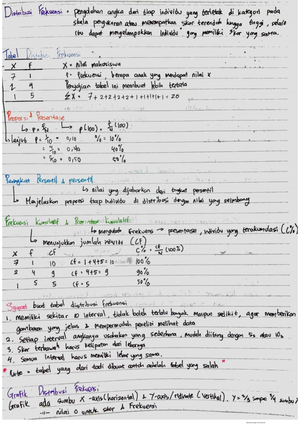 Distribusi Frekuensi = pengolahan angka dari tiap individu yang terletak di kategori pada
skala pengukuran atau menempatkan skor terendah hingga tinggi, selain
itu dapat mengelompokkan individu yang memiliki skor yang sama.
Tabel Distribusi Frekuensi
X f X = nilai mahasiswa
7 1 f = frekuensi, berapa anak yang mendapat nilai x
2 4 Penyajian tabel ini membuat lebih tertata
1 5 ΣX = 7+2+2+2+2+1+1+1+1+1 = 20
Proporsi & Persentase
p = f/N p(100) = f/N (100)
1/10 = 0,10 % = 10%
= 4/10 = 0,40 40%
= 5/10 = 0,50 50%
nilai yang dijabarkan dari
Menjelaskan proporsi tiap individu di distribusi dengan nilai yang
Frekuensi Kumulatif & Persentase Kumulatif
mengubah frekuensi → presentase, individu yang terakumulasi (C%)
menunjukkan jumlah individu (cf)
X f cf C% = cf/N (100%)
7 1 10 cf = 1+4+5 = 10 100%
2 4 9 cf = 4+5 = 9 90%
1 5 5 cf = 5 50%
buat tabel distribusi frekuensi
1. memiliki sekitar 10 interval, tidak boleh terlalu banyak maupun sedikit, agar memberikan
gambaran yang jelas & mempermudah peneliti melihat data
2. Setiap interval angkanya usahakan yang sederhana, mudah dihitung dengan 5s atau 10s
3. Skor terbawah harus kelipatan dari lebarnya
4. Semua interval harus memiliki lebar yang sama.
tabel yang dari tadi dibawa untuk adalah tabel yang salah
Grafik Distribusi Frekuensi
Grafik ada sumbu X-axis (horizontal) & Y-axis/ordinate (vertikal). Y = 2/3 sampe 3/4 sumbu X
nilai 0 untuk skor & Frekuensi